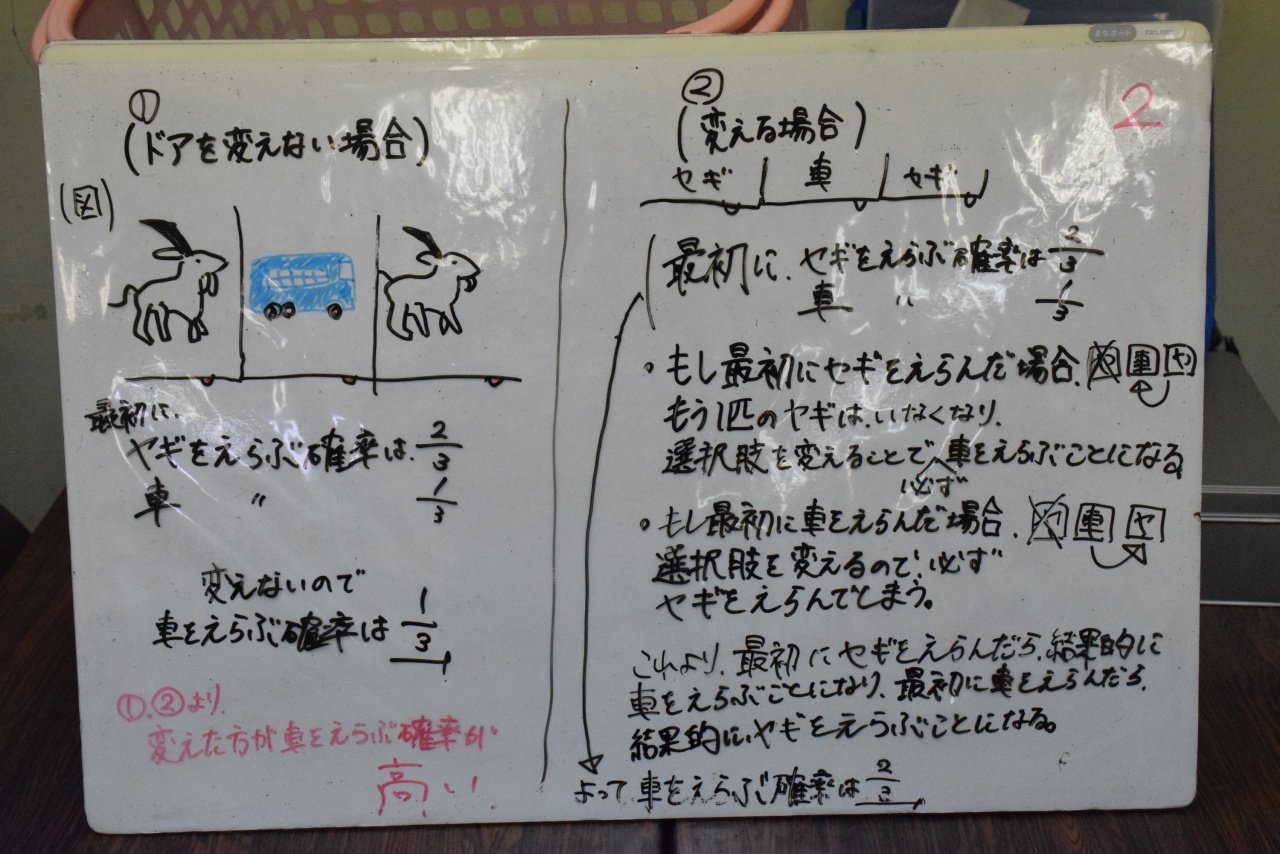 まなボード
2
①
(ドアを変えない場合)
(図)
最初に、
ヤギをえらぶ確率は、2/3
車 〃 1/3
変えないので
車をえらぶ確率は 1/3
①、②より、
変えた方が車をえらぶ確率が
高い。
②
(変える場合)
ヤギ 車 ヤギ
最初に、ヤギをえらぶ確率は 2/3
車 〃 1/3
・もし最初にヤギをえらんだ場合、ヤ 車 ヤ
もう1匹のヤギは、いなくなり、
選択肢を変えることで必ず車をえらぶことになる
・もし最初に車をえらんだ場合、ヤ 車 ヤ
選択肢を変えるので、必ず
ヤギをえらんでしまう。
これより、最初にヤギをえらんだら、結果的に
車をえらぶことになり、最初に車をえらんだら、
結果的に、ヤギをえらぶことになる。
よって、車をえらぶ確率は 2/3